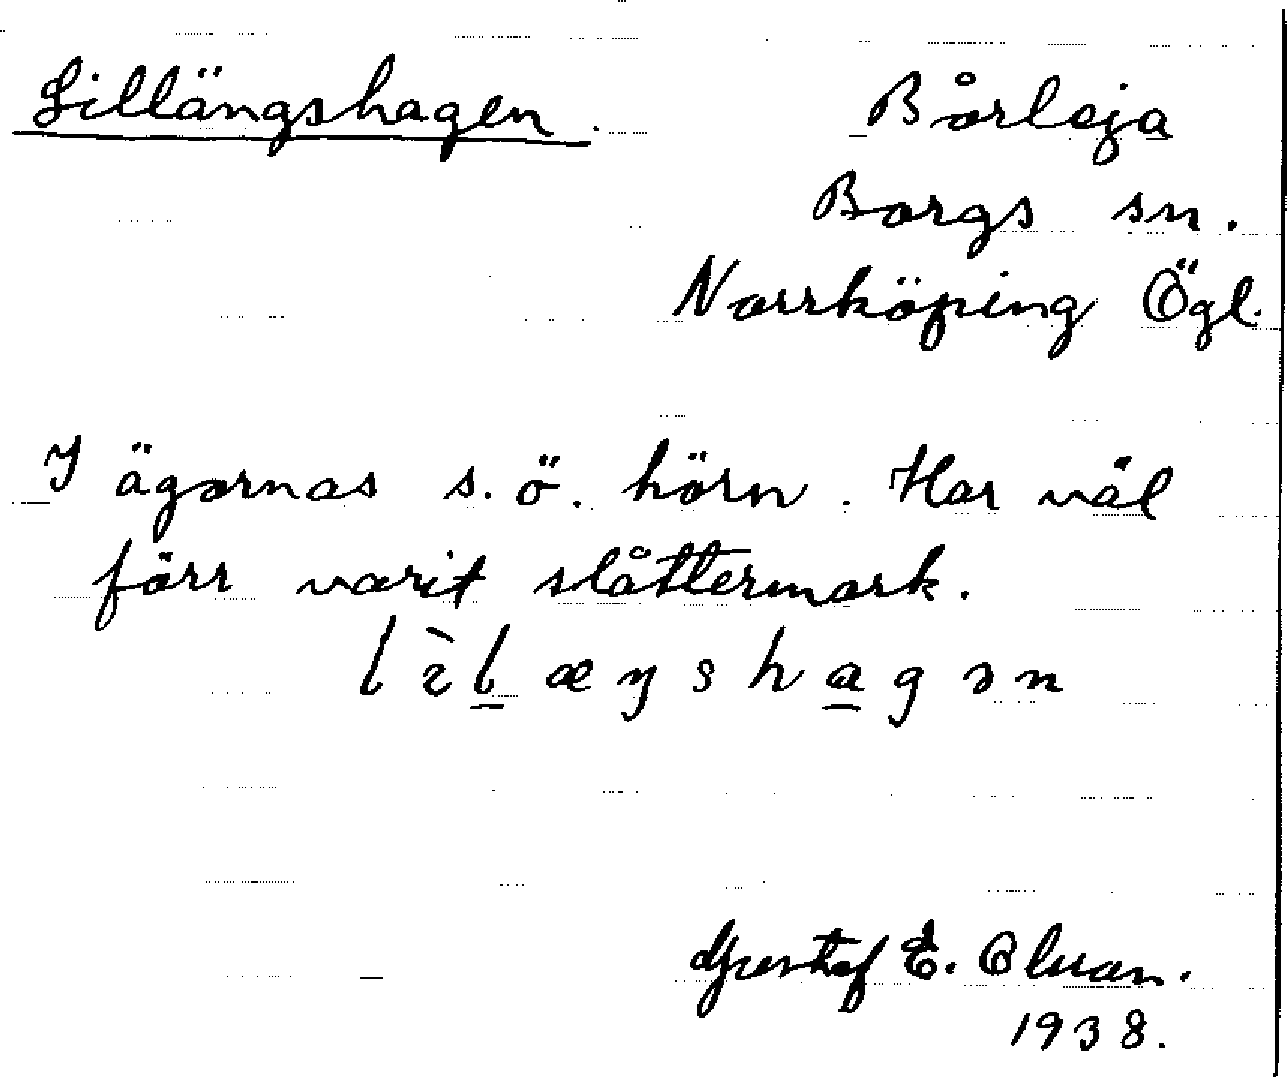 Lillängshagen.
Bårleja
Borgs sn.
Norrköping Ögl.
I ägornas s.ö. hörn. Har väl
förr varit slåttermark.
lìlæŋshagən
Gustaf E.
1938.